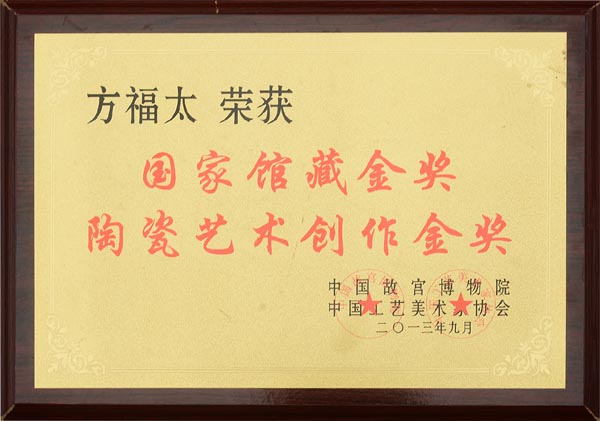 方福太 荣获
国家馆藏金奖
陶瓷艺术创作金奖
中国故宫博物院
中国工艺美术家协会
二〇一三年九月